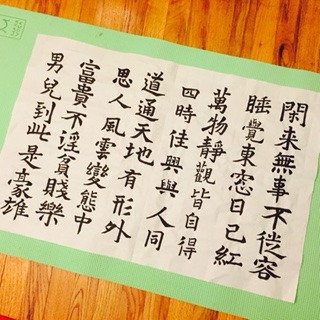 閑來無事不從容
睡覺東窓日已紅
萬物靜觀皆自得
四時佳興與人同
道通天地有形外
思入風雲變態中
富貴不淫貧賤樂
男兒到此是豪雄